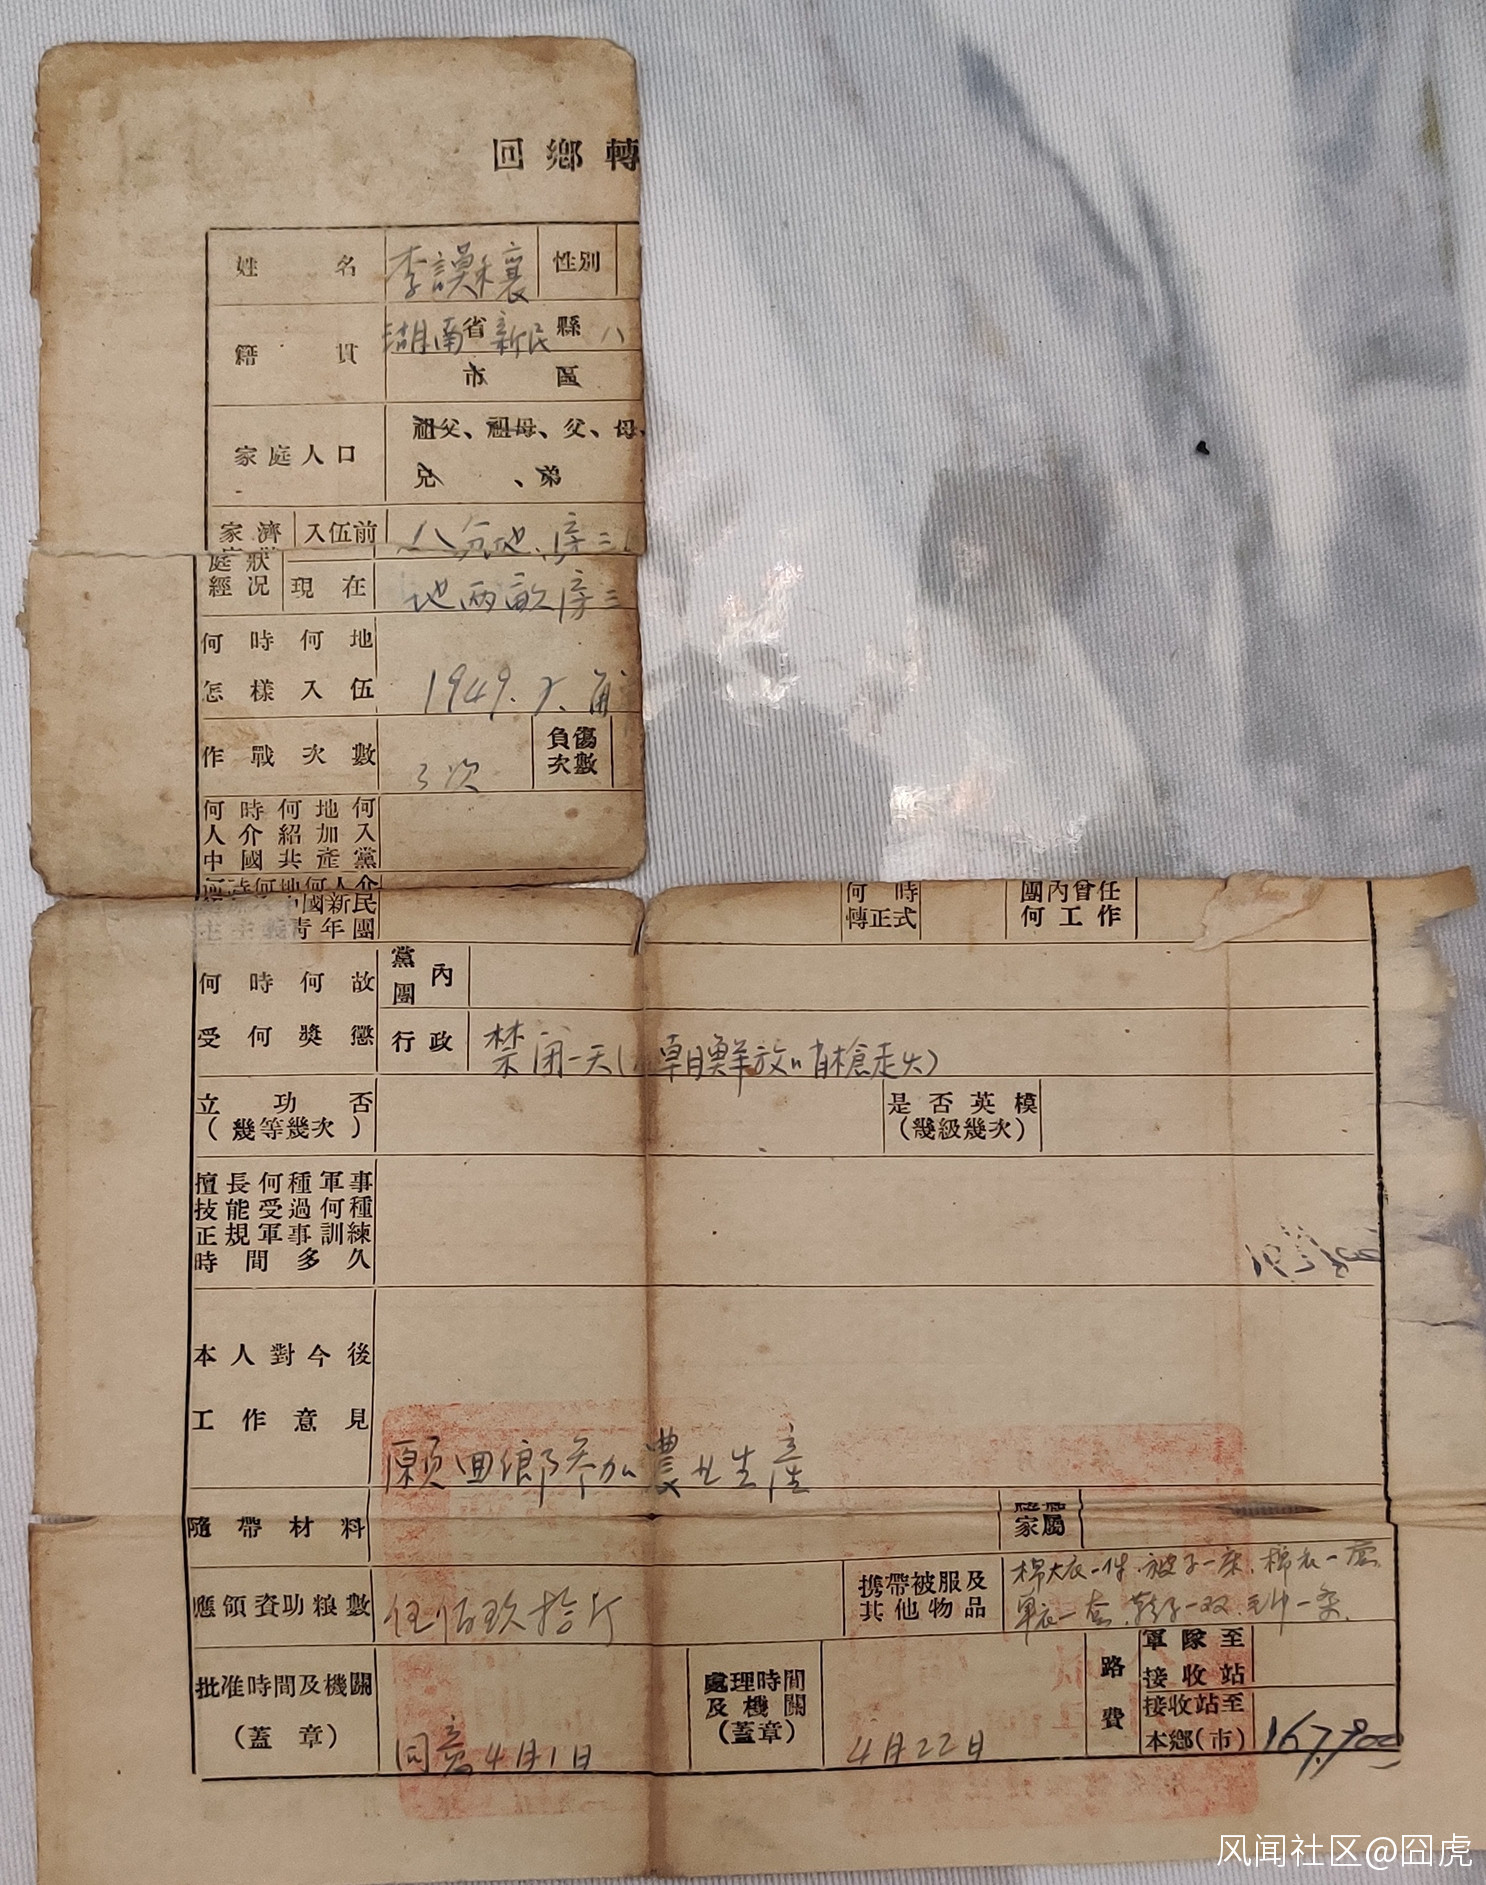 回鄉轉
姓名 李謨穰 性別
籍貫 湖南省新民縣 八
市 區
家庭人口 祖父、祖母、父、母、
兄 、弟
家濟 入伍前 八分地、房三
庭狀
經况 現在 地兩畝房三
何時何地
怎樣入伍 1949.
作戰次數 3次 負傷次數
何時何地何
人介紹加入
中國共產黨
何時何地何人介 何時 團內曾任
國新民 轉正式 何工作
主主義青年團
何時何故 黨團內
受何獎懲 行政 禁闭一天(在朝鮮放哨槍走火)
立功否 是否英模
(幾等幾次) (幾級幾次)
擅長何種軍事
技能受過何種
正規軍事訓練
時間多久
本人對今後
工作意見 願回鄉参加農业生産
隨帶材料 隨帶家屬
應領資功粮數 伍佰玖拾斤 携帶被服及其他物品 棉大衣一件.被子一床.棉衣一套.
單衣一套.鞋子一双.毛巾一条.
批准時間及機關 處理時間及機關 路費 軍隊至接收站
(蓋章) 同意4月1日 (蓋章) 4月22日 接收站至本鄉(市) 167,900
风闻社区@囧虎